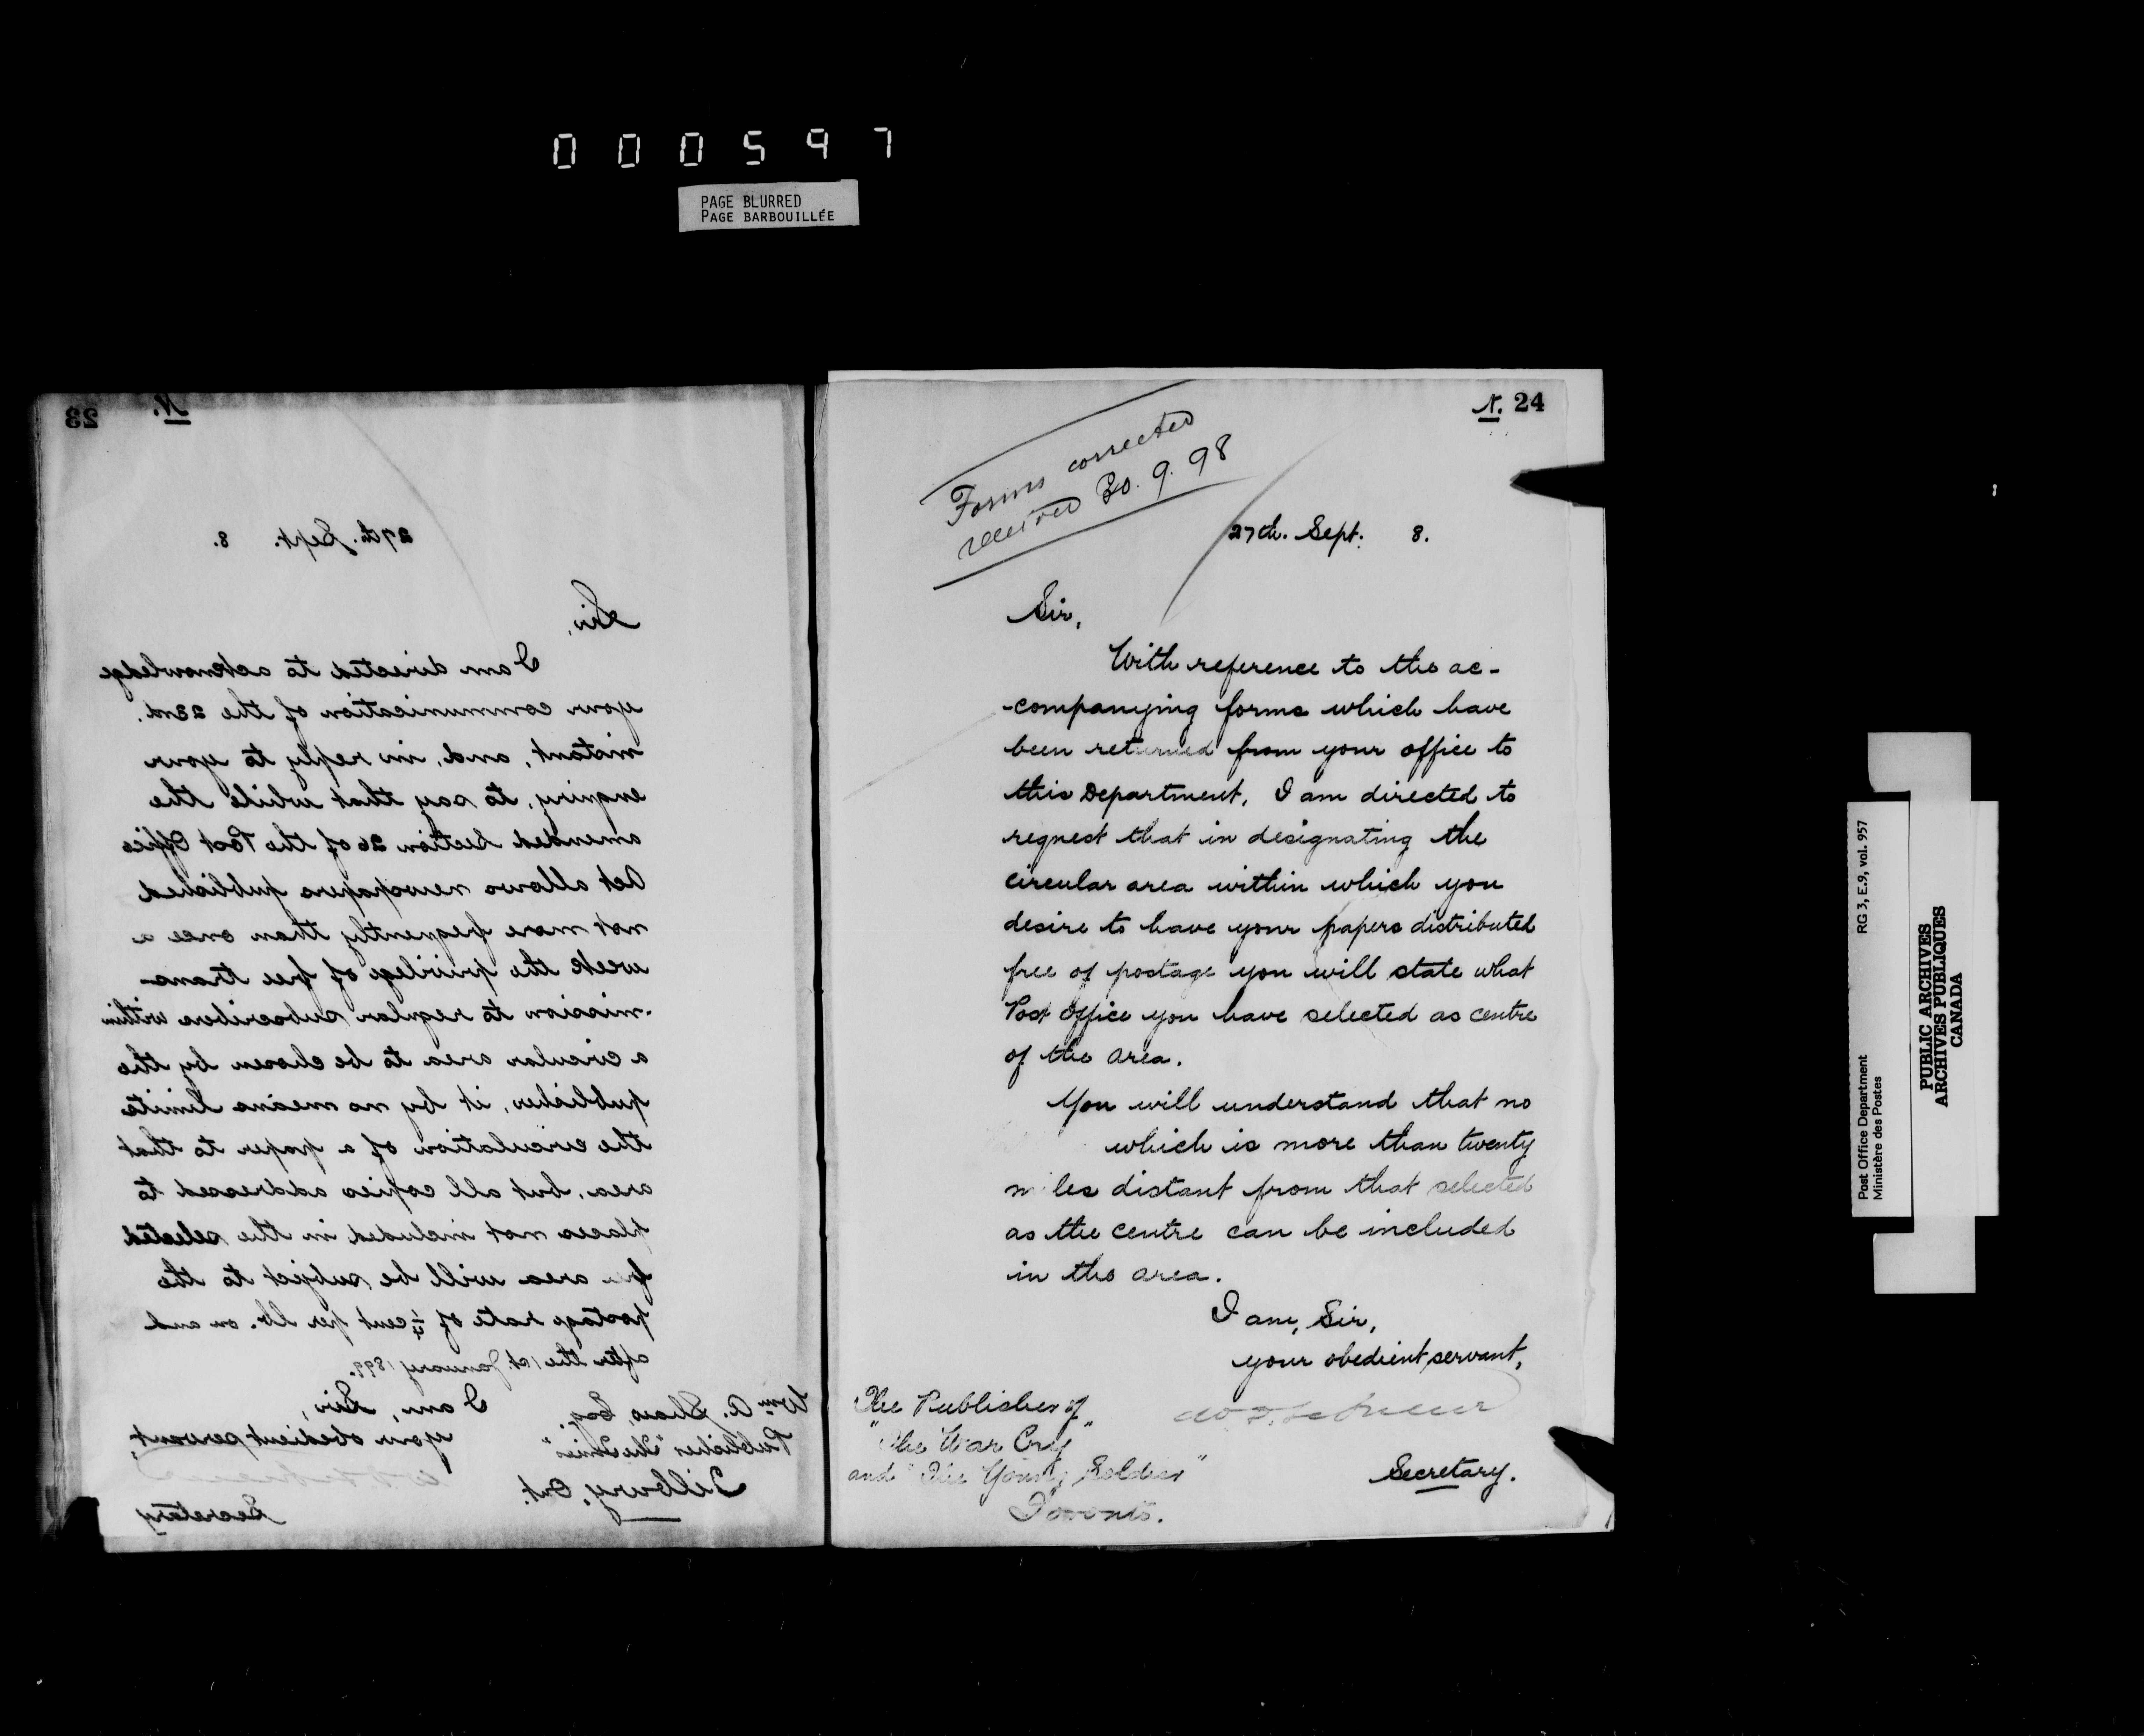 000597
PAGE BLURRED
PAGE BARBOUILLÉE
23
N.
27th. Sept. 8.
Sir,
I am directed to acknowledge
your communication of the 22nd.
instant, and, in reply to your
enquiry, to say that while the
amended Section 26 of the Post Office
Act allows newspapers published
not more frequently than once a
week the privilege of free trans-
-mission to regular subscribers within
a circular area to be chosen by the
publisher, it by no means limits
the circulation of a paper to that
area, but all copies addressed to
places not included in the selected
free area will be subject to the
postage rate of ¼ cent per lb. on and
after the 1st. January 1899.
I am, Sir,
your obedient servant,
Secretary
Wm. A. Shaw, Esq.
Publisher "The Times"
Tilbury, Ont.
N. 24
Forms corrected
received 30. 9. 98
27th. Sept. 8.
Sir,
With reference to the ac-
-companying forms which have
been returned from your office to
this Department, I am directed to
request that in designating the
circular area within which you
desire to have your papers distributed
free of postage you will state what
Post Office you have selected as centre
of the area.
You will understand that no
which is more than twenty
miles distant from that selected
as the centre can be included
in the area.
I am, Sir,
your obedient servant,
Secretary.
The Publisher of
"The War Cry"
and "The Young Soldier"
Toronto.
Post Office Department
Ministère des Postes
RG 3, E.9, vol. 957
PUBLIC ARCHIVES
ARCHIVES PUBLIQUES
CANADA